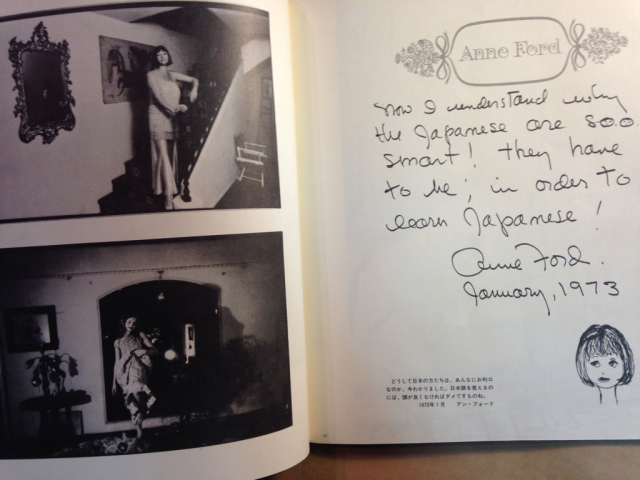 Anne Ford
Now I understand why
the Japanese are soo.o
smart! they have
to be; in order to
learn Japanese!
Anne Ford.
January, 1973
どうして日本の方たちは、あんなにお利口
なのか、今わかりました。日本語を覚えるの
には、頭が良くなければダメですものね。
1973年1月　アン・フォード